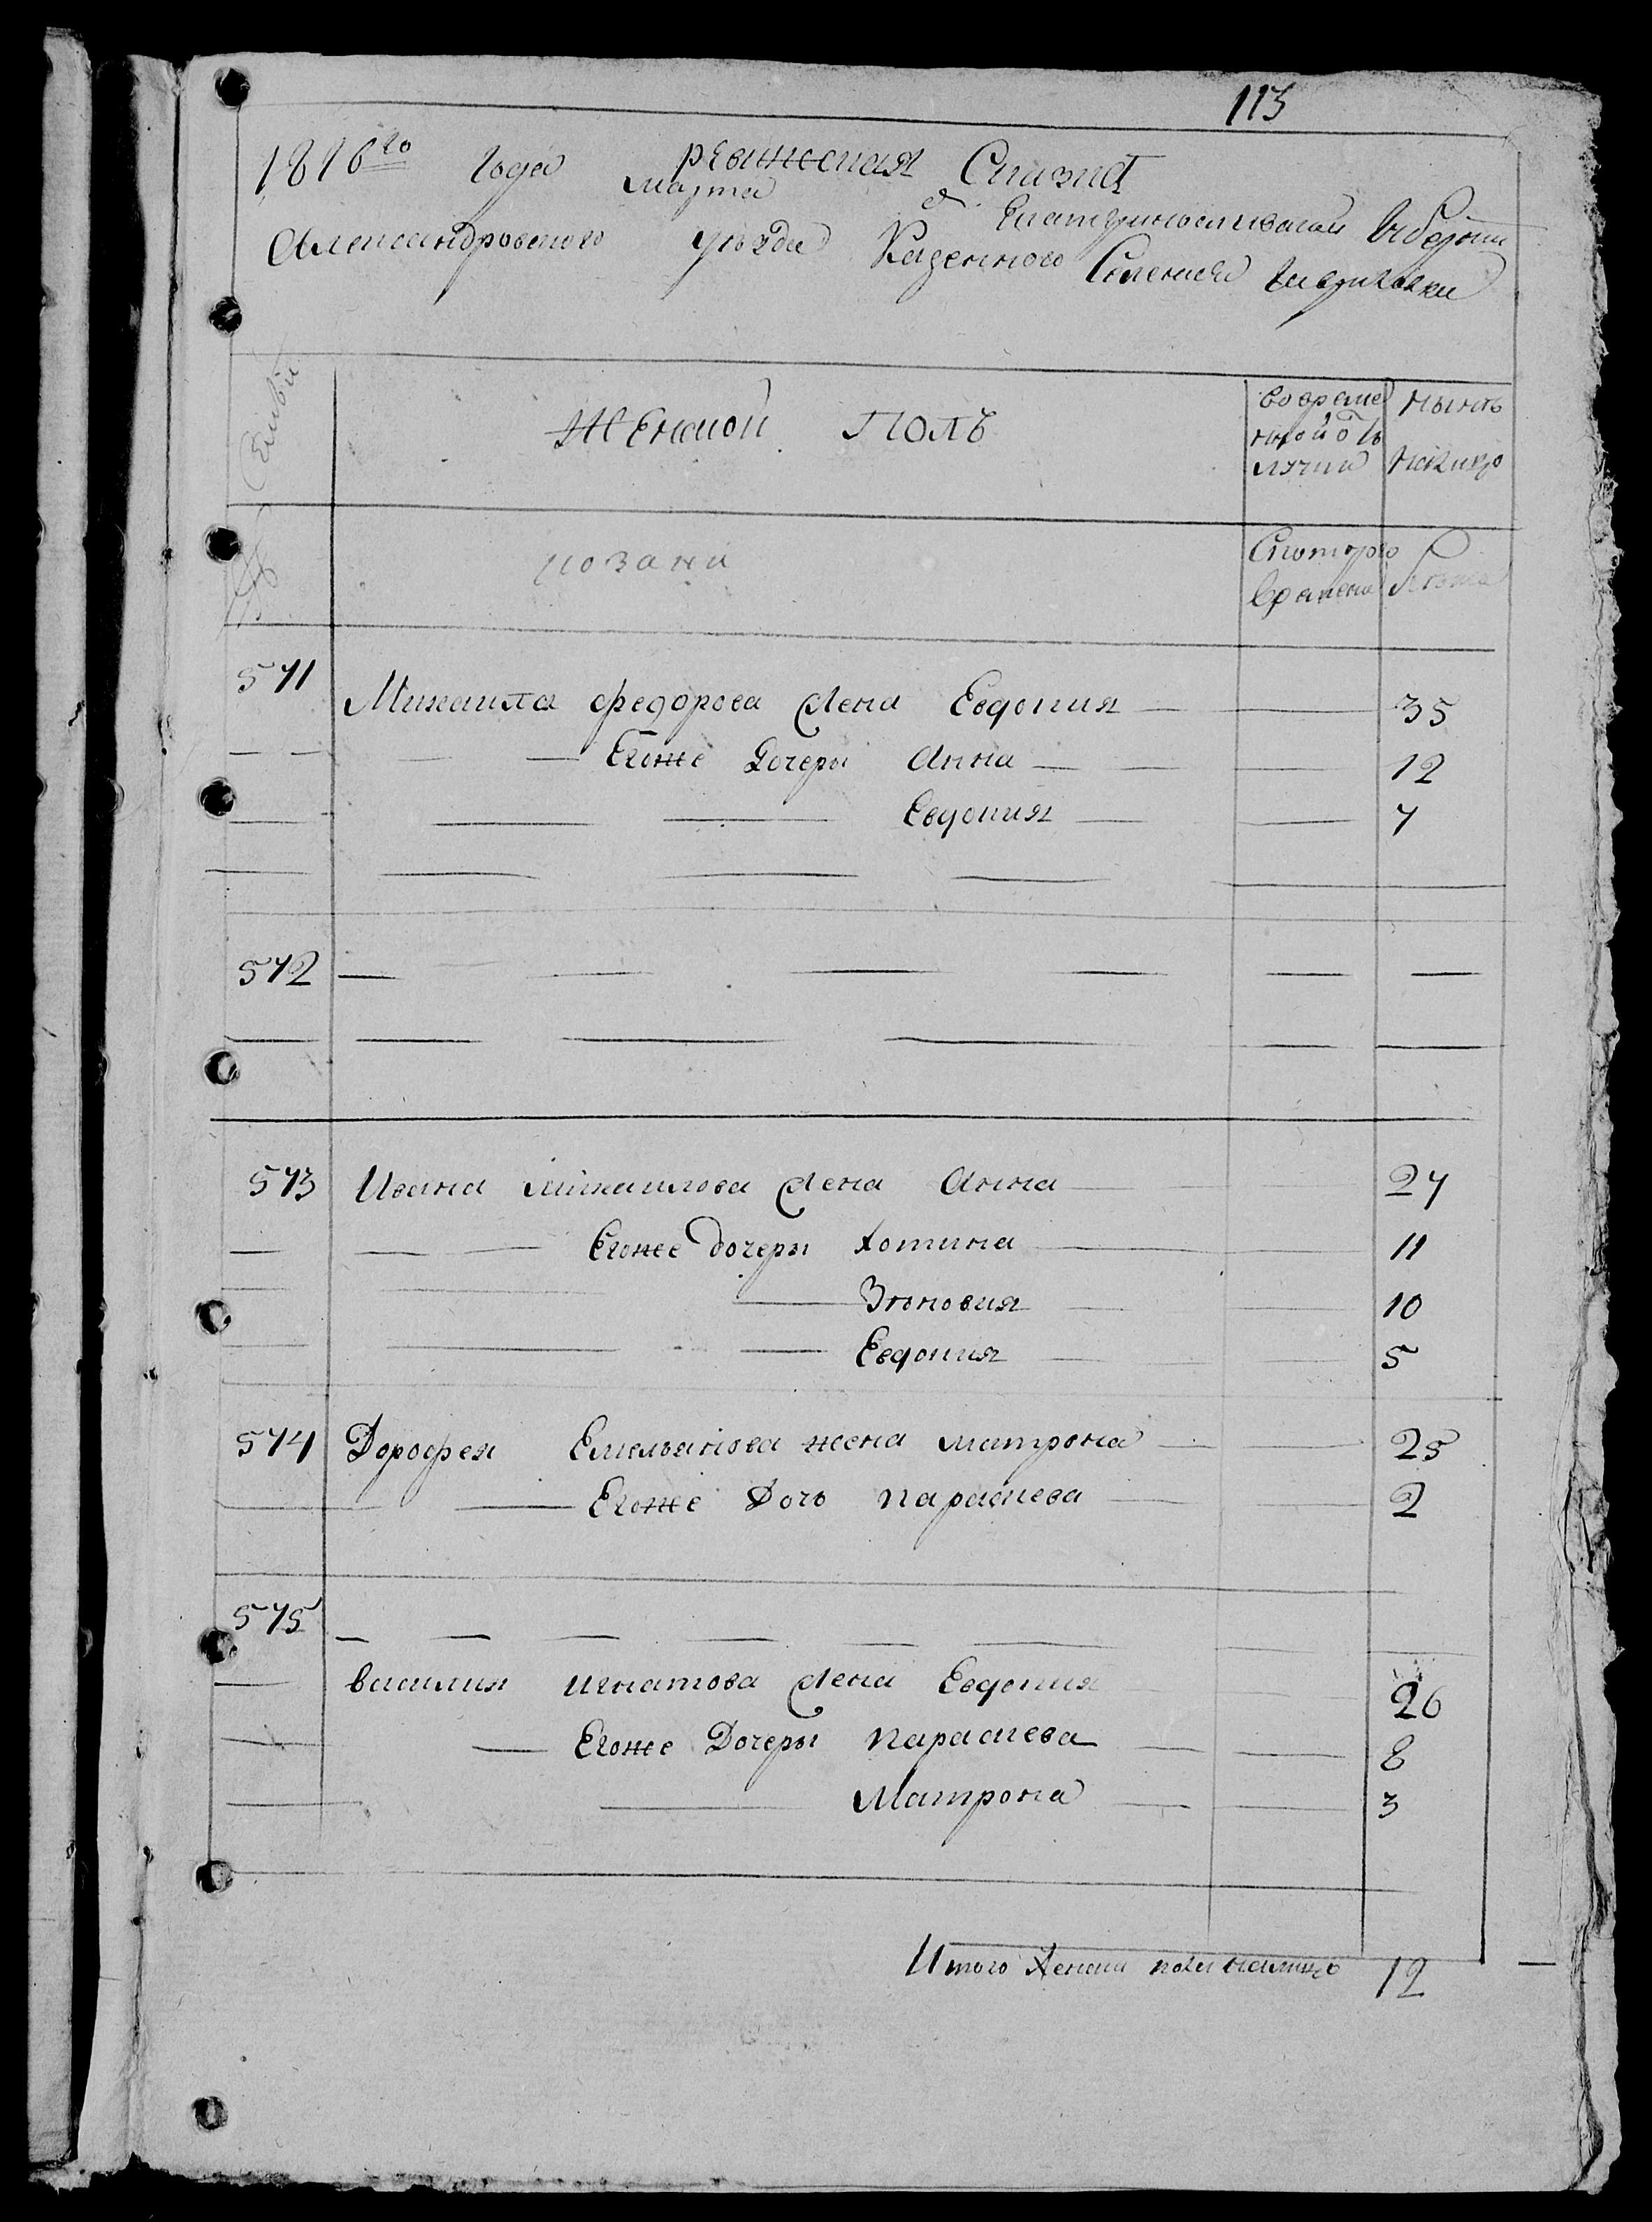 113
1816го года марта д ревижская Сказка Екатеринославской Губернии
Александровского уезда Казенного Селения
Семьи
Женской Полъ
Во временной отлучки
Ныне налицо
козаки
С которого времени
Лета
571 Михаила федорова жена Евдокия 35
Егоже Дочери Анна 12
Евдокия 7
572
573 Ивана михаилова жена Анна 27
Егоже дочери Хотина 11
Зѣновия 10
Евдокия 5
574 Дорофея Емельянова жена матрона 25
Егоже Дочь параскева 2
575
василия игнатова жена Евдокия 26
Егоже Дочери параскева 8
Матрона 3
Итого женска пола налицо 12